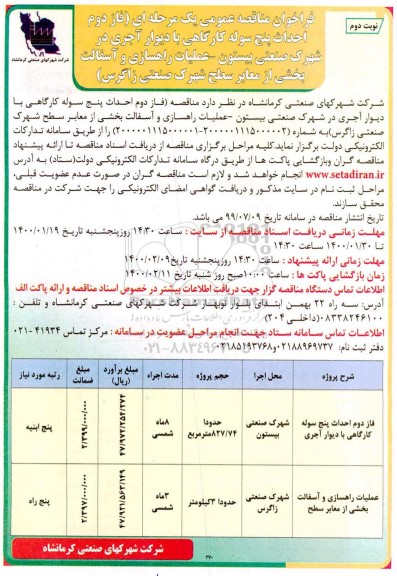 نوبت دوم
فراخوان مناقصه عمومی یک مرحله ای (فاز دوم
احداث پنج سوله کارگاهی با دیوار آجری در
شهرک صنعتی بیستون –عملیات راهسازی و آسفالت
بخشی از معابر سطح شهرک صنعتی زاگرس)
شرکت شهرکهای صنعتی کرمانشاه
شرکت شهرکهای صنعتی کرمانشاه در نظر دارد مناقصه (فاز دوم احداث پنج سوله کارگاهی با
دیوار آجری در شهرک صنعتی بیستون –عملیات راهسازی و آسفالت بخشی از معابر سطح شهرک
صنعتی زاگرس)به شماره (۲۰۰۰۰۰۱۱۱۵۰۰۰۰۰۲-۲۰۰۰۰۰۱۱۱۵۰۰۰۰۰۱) را از طریق سامانه تدارکات
الکترونیکی دولت برگزار نماید.کلیه مراحل برگزاری مناقصه از دریافت اسناد مناقصه تا ارائه پیشنهاد
مناقصه گران وبازگشایی پاکت ها از طریق درگاه سامانه تدارکات الکترونیکی دولت(ستاد) به آدرس
www.setadiran.ir انجام خواهد شد و لازم است مناقصه گران در صورت عدم عضویت قبلی،
مراحل ثبت نام در سایت مذکور و دریافت گواهی امضای الکترونیکی را جهت شرکت در مناقصه
محقق سازند.
تاریخ انتشار مناقصه در سامانه تاریخ ۹۹/۰۷/۰۹ می باشد.
مهلت زمانی دریافت اسناد مناقصه از سایت : ساعت ۱۴:۳۰ روزپنجشنبه تاریخ ۱۴۰۰/۰۱/۱۹
تا ۱۴۰۰/۰۱/۳۰ ساعت ۱۴:۳۰
مهلت زمانی ارائه پیشنهاد : ساعت ۱۴:۳۰ روز پنجشنبه تاریخ ۱۴۰۰/۰۲/۰۹
زمان بازگشایی پاکت ها : ساعت ۱۰:۰۰صبح روز شنبه تاریخ ۱۴۰۰/۰۲/۱۱
اطلاعات تماس دستگاه مناقصه گزار جهت دریافت اطلاعات بیشتر در خصوص اسناد مناقصه و ارائه پاکت الف
آدرس: سه راه ۲۲ بهمن ابتدای بلوار نوبهار شرکت شهرکهای صنعتی کرمانشاه و تلفن :
۰۸۳۳۸۲۴۶۱۰۰(داخلی ۲۰۴)
اطلاعات تماس سامانه ستاد جهت انجام مراحل عضویت در سامانه : مرکز تماس ۴۱۹۳۴ -۰۲۱
دفتر ثبت نام: ۰۲۱۸۸۹۶۹۷۳۷ و ۰۲۱۸۵۱۹۳۷۶۸
شرح پروژه محل اجرا حجم پروژه مدت اجراء مبلغ برآورد (ریال) مبلغ ضمانت رتبه مورد نیاز
فاز دوم احداث پنج سوله کارگاهی با دیوار آجری شهرک صنعتی بیستون حدودا ۸۲۷/۷۴مترمربع ۸ماه شمسی ۴۷/۹۷۲/۲۵۴/۲۷۴ ۲/۳۹۹/۰۰۰/۰۰۰ پنج ابنیه
عملیات راهسازی و آسفالت بخشی از معابر سطح شهرک صنعتی زاگرس حدودا ۳کیلومتر ۳ماه شمسی ۴۷/۹۳۱/۵۶۳/۱۴۹ ۲/۳۹۷/۰۰۰/۰۰۰ پنج راه
شرکت شهرکهای صنعتی کرمانشاه
۲۷۰